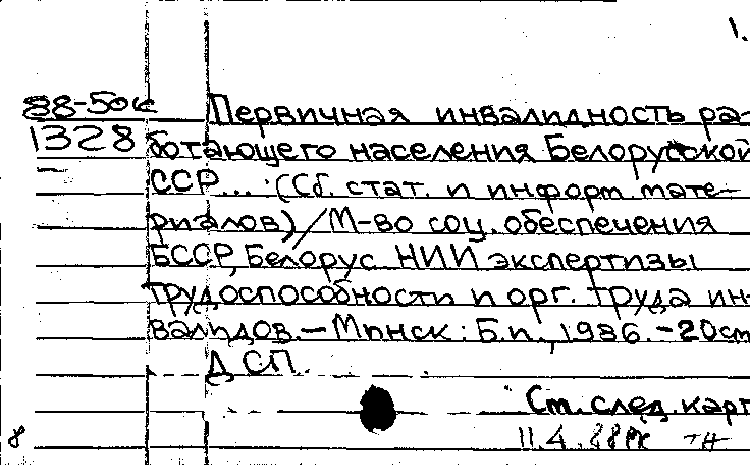 1.
88-50к Первичная инвалидность ра-
1328 ботающего населения Белорусской
ССР... : (Сб. стат. и информ. мате-
риалов) / М-во соц. обеспечения
БССР, Белорус. НИИ экспертизы
трудоспособности и орг. труда ин-
валидов. – Минск : Б.и., 1986. – 20см
ДСП.
См. след. карт
8 11.4.88